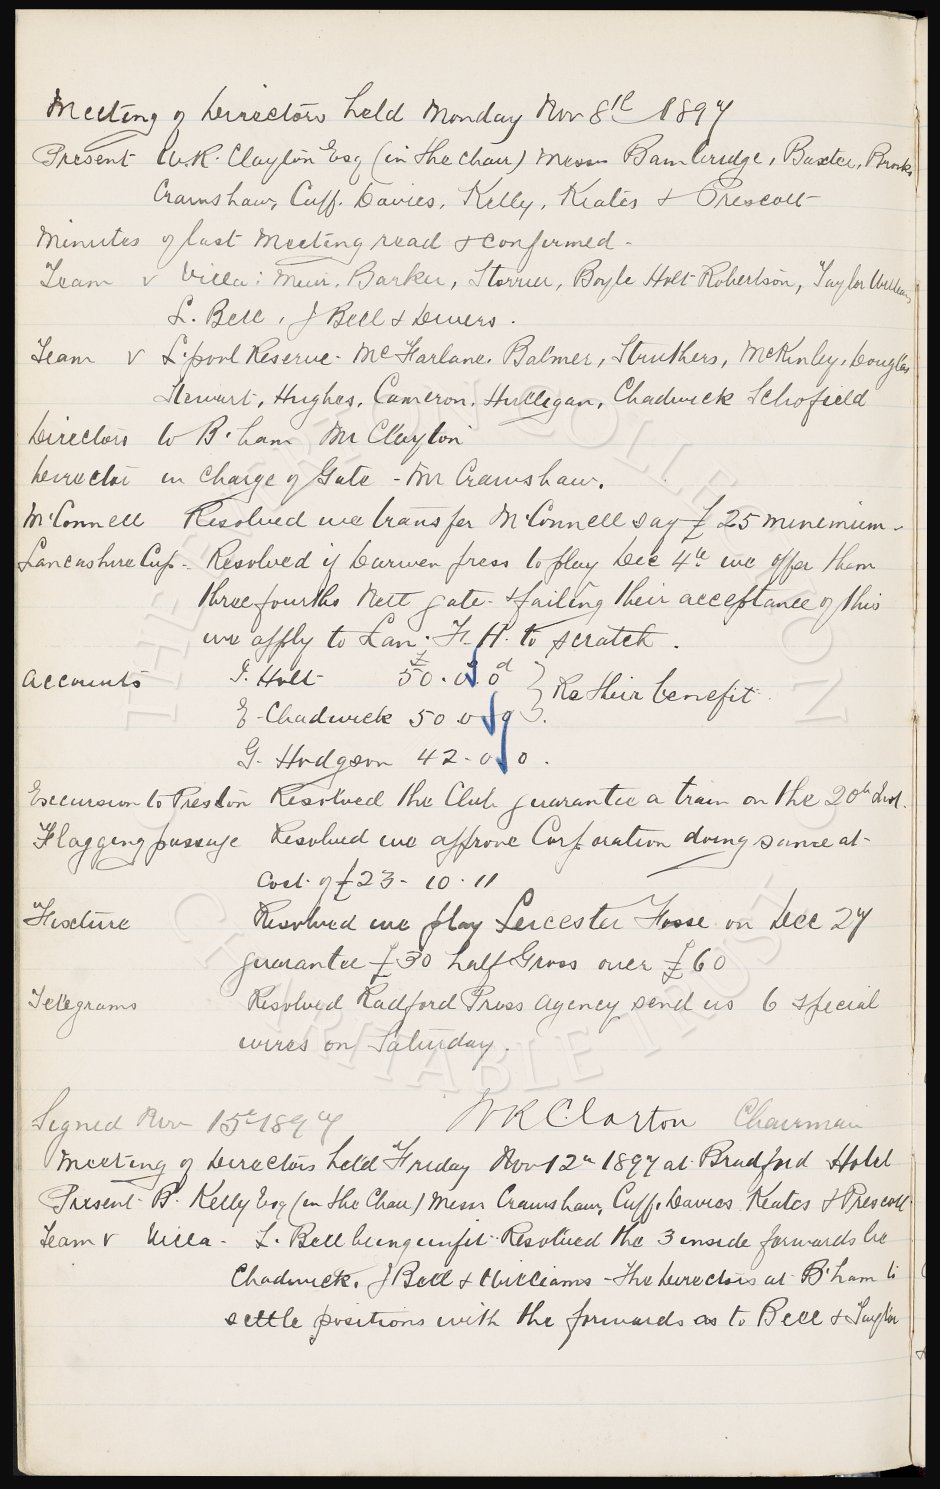 Meeting of Directors held Monday Nov 8th 1897
Present W.R. Clayton Esq (in the Chair) Messrs Bainbridge, Baxter, Brooks
Crawshaw, Cuff, Davies, Kelly, Keates & Prescott
Minutes of last Meeting read & confirmed -
Team v Villa: Muir, Barker, Storrier, Boyle Holt Robertson, Taylor Williams
L. Bell, J Bell & Divers.
Team v L'pool Reserve - McFarlane, Balmer, Struthers, McKinley, Douglas
Stewart, Hughes, Cameron, Hulligan, Chadwick Schofield
Directors to B'ham Mr Clayton
Director in charge of Gate - Mr Crawshaw.
McConnell Resolved we transfer McConnell say £25 minimium -
Lancashire Cup - Resolved if Darwen press to play Dec 4th we offer them
three fourths nett gate & failing their acceptance of this
we apply to Lan. F. A. to scratch.
Accounts J. Holt £50. 0s. 0d } Re their benefit
E. Chadwick 50 0 0
G. Hodgson 42 - 0 0.
Excursion to Preston Resolved the Club guarantee a train on the 20th Inst.
Flagging passage Resolved we approve Corporation doing same at
cost of £23 - 10 - 11
Fixture Resolved we play Leicester Fosse on Dec 27
guarantee £30 half Gross over £60
Telegrams Resolved Radford Press Agency send us 6 special
wires on Saturday.
Signed Nov 15th 1897 WR Clayton Chairman
Meeting of Directors held Friday Nov 12th 1897 at Bradford Hotel
Present B. Kelly Esq (in the Chair) Messrs Crawshaw, Cuff, Davies Keates & Prescott
Team v Villa - L. Bell being unfit Resolved the 3 inside forwards be
Chadwick, J Bell & Williams - the Directors at B'ham to
settle positions with the forwards as to Bell & Taylor
THE EVERTON COLLECTION
CHARITABLE TRUST